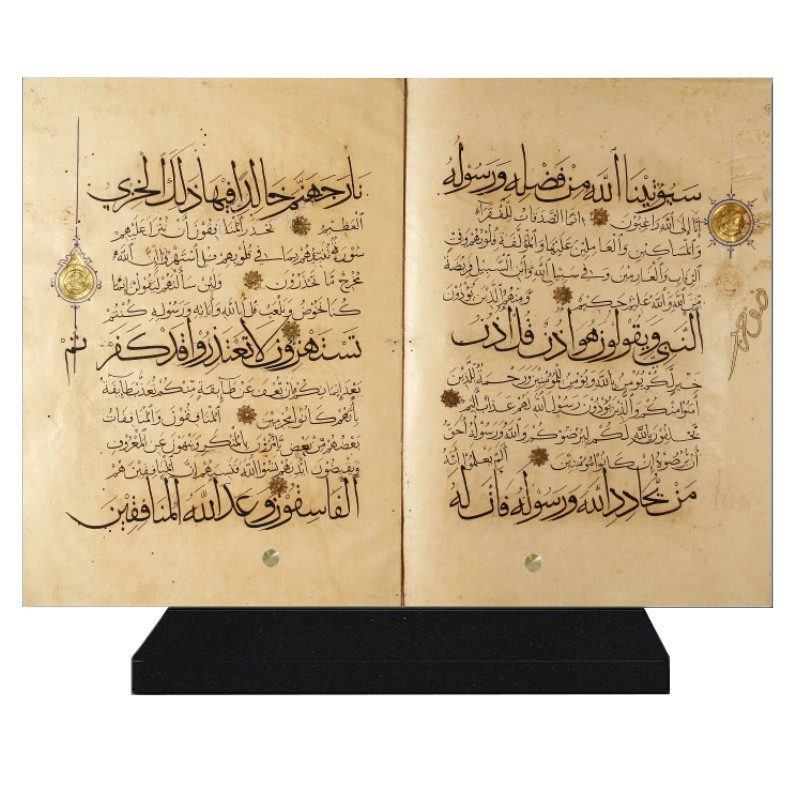 سيؤتينا الله من فضله ورسوله
إنا إلى الله راغبون إنما الصدقات للفقراء
والمساكين والعاملين عليها والمؤلفة قلوبهم وفي
الرقاب والغارمين وفي سبيل الله وابن السبيل فريضة
من الله والله عليم حكيم ومنهم الذين يؤذون
النبي ويقولون هو أذن قل أذن
خير لكم يؤمن بالله ويؤمن للمؤمنين ورحمة للذين
آمنوا منكم والذين يؤذون رسول الله لهم عذاب أليم
يحلفون بالله لكم ليرضوكم والله ورسوله أحق
أن يرضوه إن كانوا مؤمنين ألم يعلموا أنه
من يحادد الله ورسوله فأن له
نار جهنم خالدا فيها ذلك الخزي
العظيم يحذر المنافقون أن تنزل عليهم
سورة تنبئهم بما في قلوبهم قل استهزئوا إن الله
مخرج ما تحذرون ولئن سألتهم ليقولن إنما
كنا نخوض ونلعب قل أبالله وآياته ورسوله كنتم
تستهزؤن لا تعتذروا قد كفرتم
بعد إيمانكم إن نعف عن طائفة منكم نعذب طائفة
بأنهم كانوا مجرمين المنافقون والمنافقات
بعضهم من بعض يأمرون بالمنكر وينهون عن المعروف
ويقبضون أيديهم نسوا الله فنسيهم إن المنافقين هم
الفاسقون وعد الله المنافقين